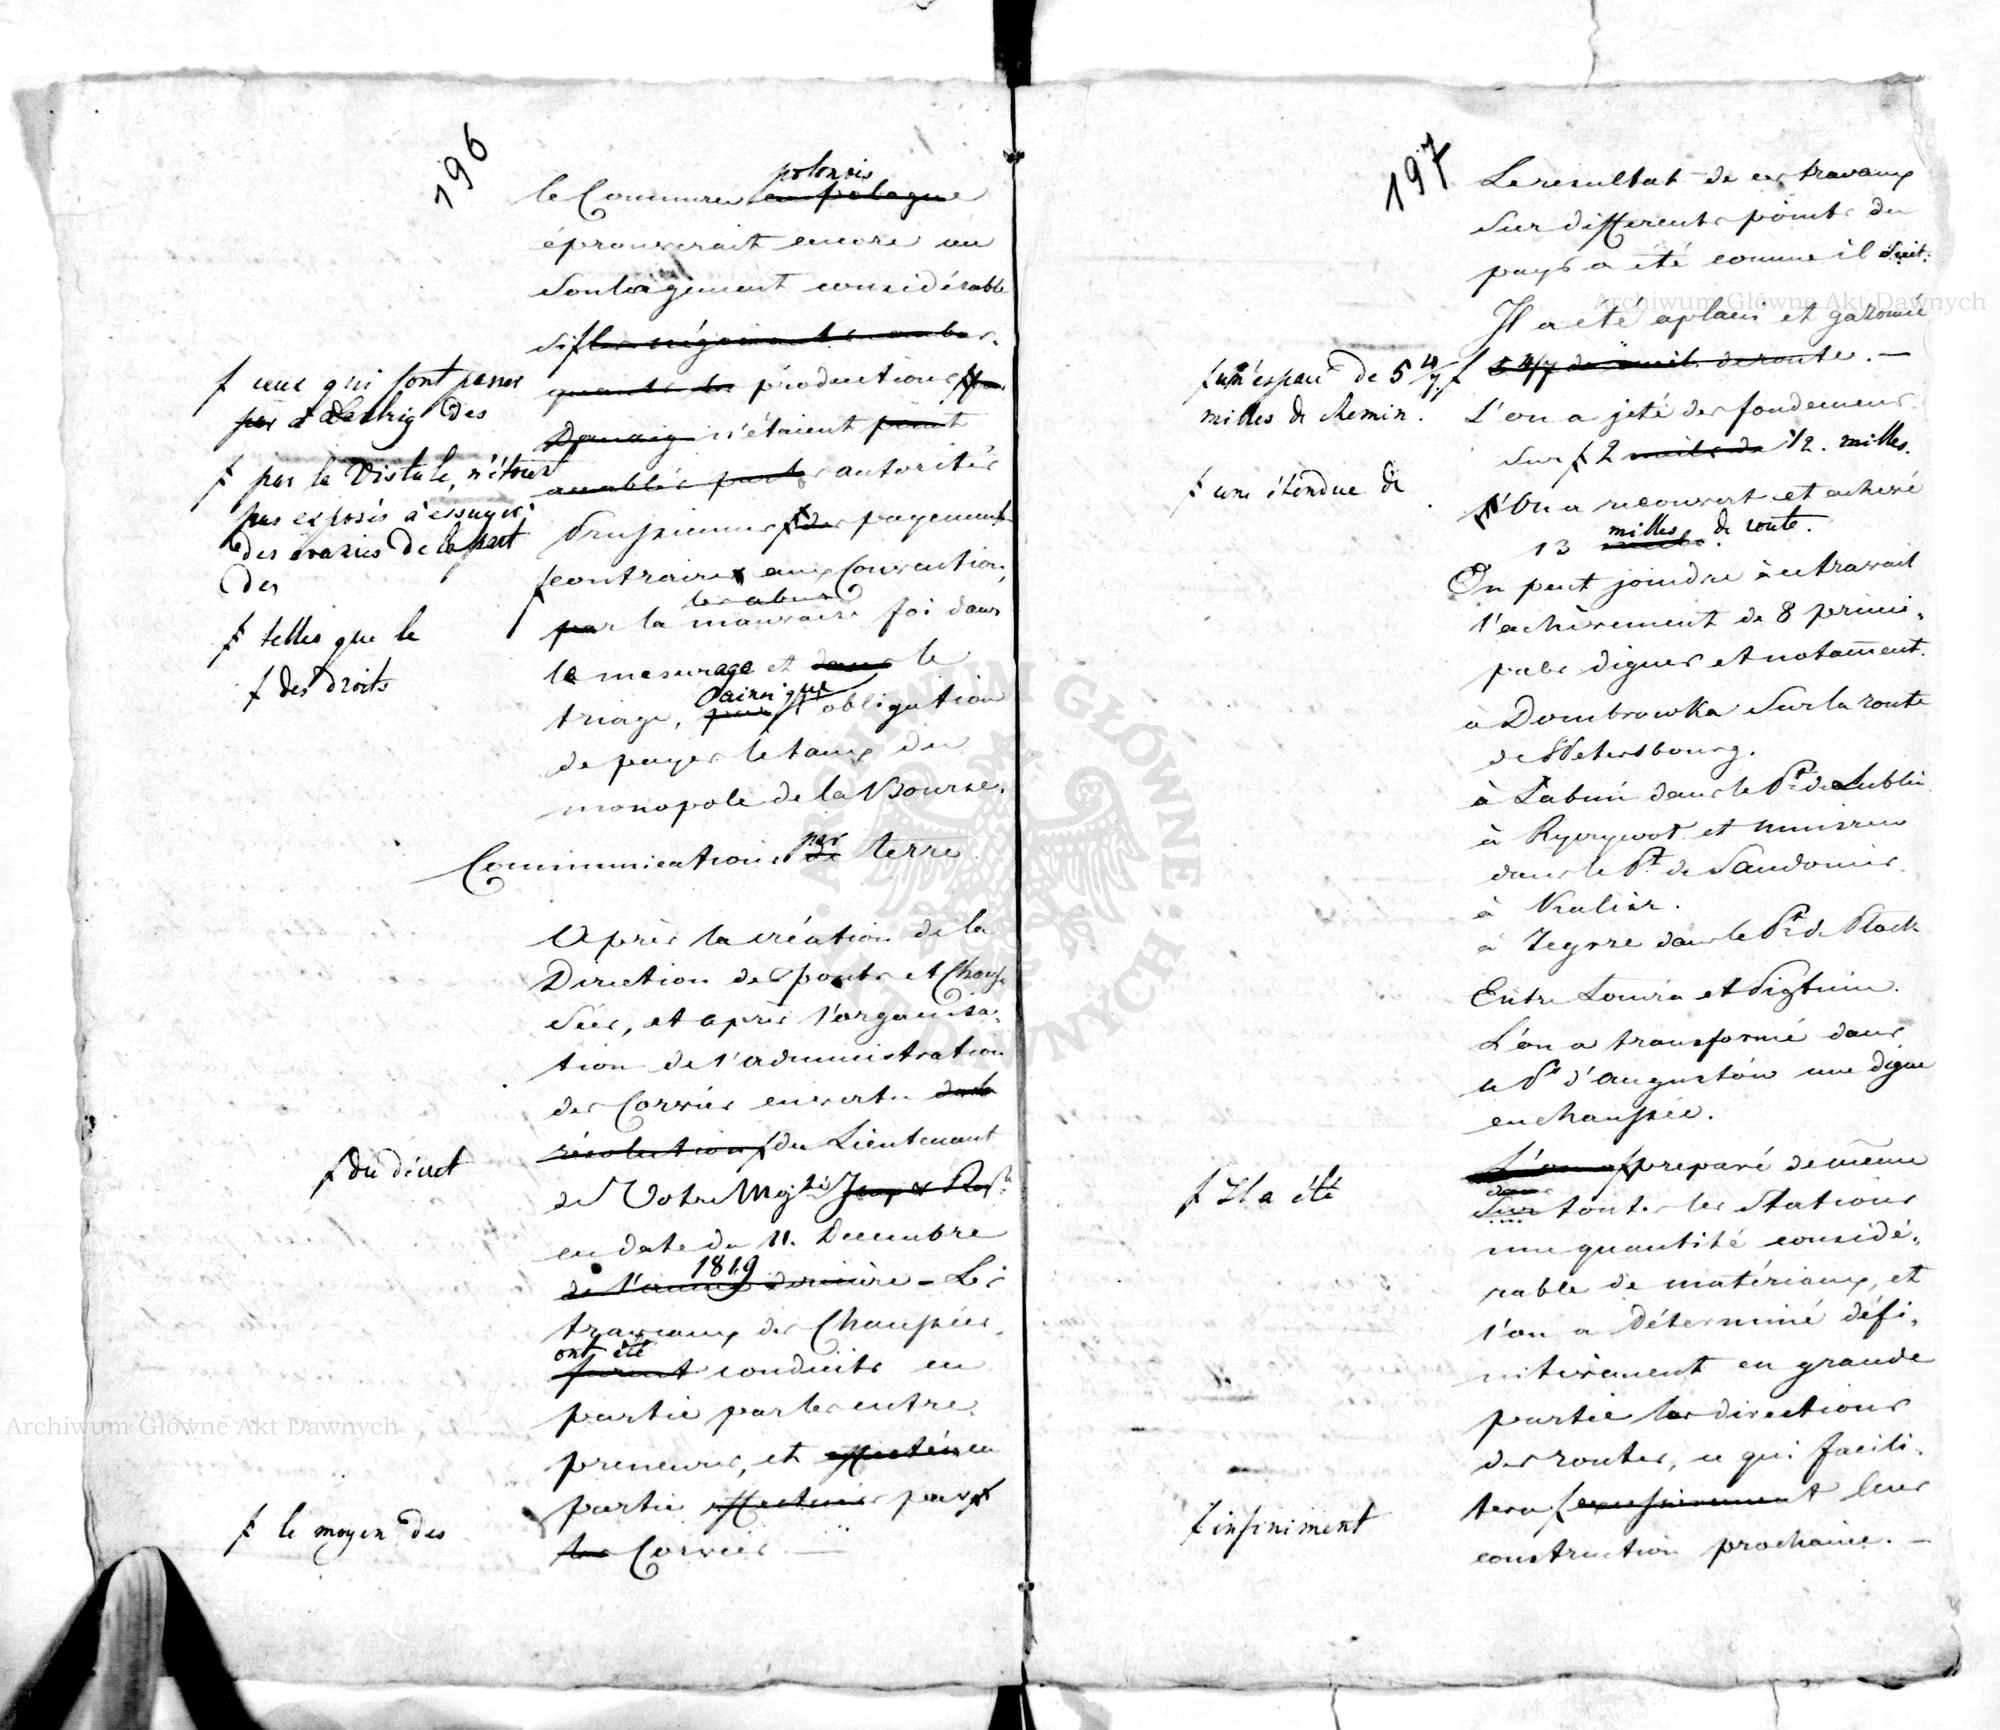 196
polonais
le Commerce en pologne
éprouverait encore un
soulagement considérable
si ſ les négociants embar-
quants des productions ſ par
Danzig n'étaient point
accablés par les autorités
Prussiennes ſ des payements
ſ contraires aux Conventions,
les abus
par la mauvaise foi dans
le mesurage et dans le
ainsi que
triage, par l'obligation
de payer le taux du
monopole de la Bourse.
ſ ceux qui font passer
par à des
ſ par la Vistule, n'étoient
pas exposés à essuyer
des avanies de la part
des
ſ telles que le
ſ des droits
par
Communications de terre
Après la création de la
Direction des ponts et Chaus-
sées, et après l'organisa-
tion de l'administration
des Corvées en vertu de la
résolution ſ du Lieutenant
ſ du décret
de Votre Majté
en date du 11. Decembre
1819
de l'année dernière – Les
travaux des Chaussées
ont été
furent conduits en
partie par les entre-
preneurs, et effectués en
partie effectués par ſ
les Corvées. —
ſ le moyen des
197
Le resultat de ces travaux
sur differents points du
pays a été comme il suit:
Il a été aplani et gazonné
ſ 5 4/7 de mile de route. —
ſ un espace de 5 4/7
milles de chemin.
L'on a jeté des fondemens
sur ſ 2 mile de 1/2. milles.
ſ une étendue de
L'on a recouvert et achevé
milles de route.
13
On peut joindre à ce travail
l'achèvement de 8 princi-
pales digues et notament.
à Dombrowka sur la route
de St Petersbourg.
à Łabuń dans le Pt de Lublin
à Ryczywoł et
dans le Pt de Sandomir.
à Kalisz.
à Zegrze dans le Pt de Płock
Entre Łomża et Piątnica.
L'on a transformé dans
le Pt d'Augustow une digue
en chaussée.
L'on a ſ preparé de même
ſ Il a été
dans
sur toutes les stations
une quantité considé-
rable de matériaux, et
l'on a déterminé défi-
nitivement en grande
partie les directions
des routes, ce qui facili-
tera ſ leur
ſ infiniment
construction prochaine. —
Archiwum Główne Akt Dawnych
Archiwum Główne Akt Dawnych
ARCHIWUM GŁÓWNE AKT DAWNYCH